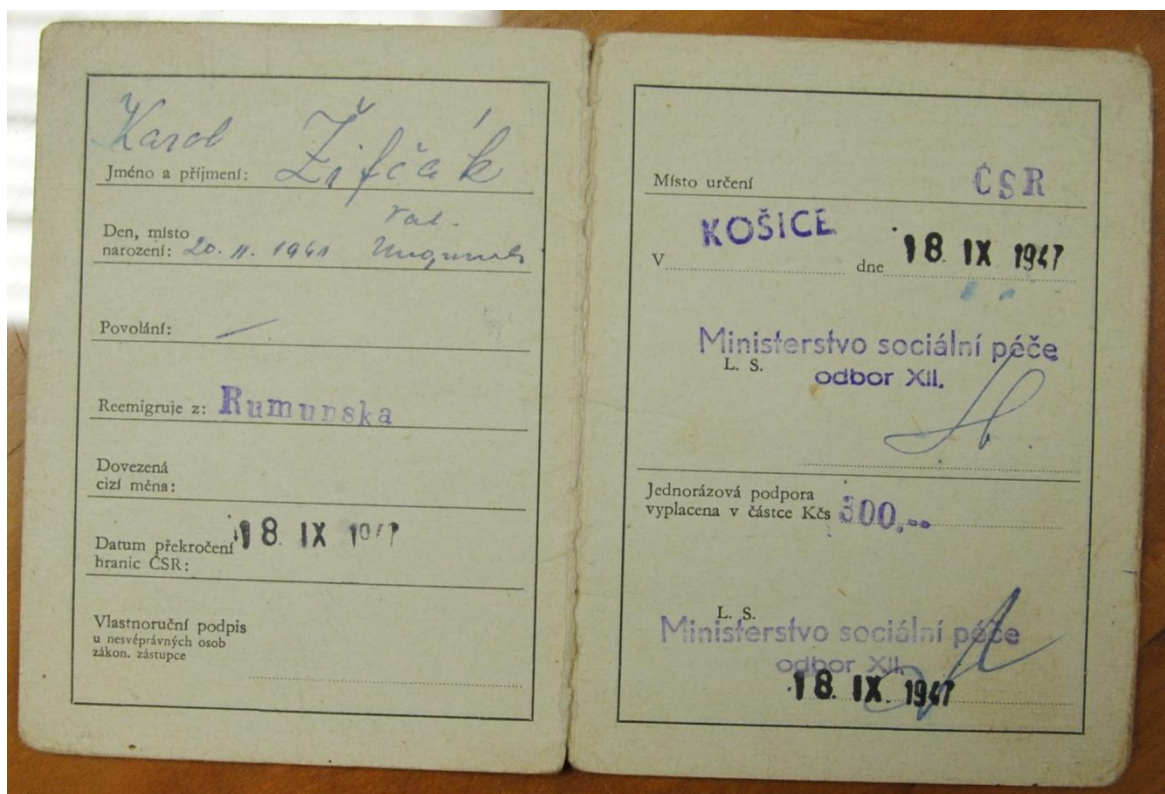 Karol Žifčák
Jméno a příjmení:
Den, místo
narození: 20. II. 1941
Povolání: —
Reemigruje z: Rumunska
Dovezená
cizí měna:
Datum překročení 18. IX 1947
hranic ČSR:
Vlastnoruční podpis
u nesvéprávných osob
zákon. zástupce
Místo určení ČSR
KOŠICE 18. IX 1947
V dne
Ministerstvo sociální péče
L. S.
odbor XII.
Jednorázová podpora
vyplacena v částce Kčs 300,--
L. S.
Ministerstvo sociální péče
odbor XII.
18. IX. 1947